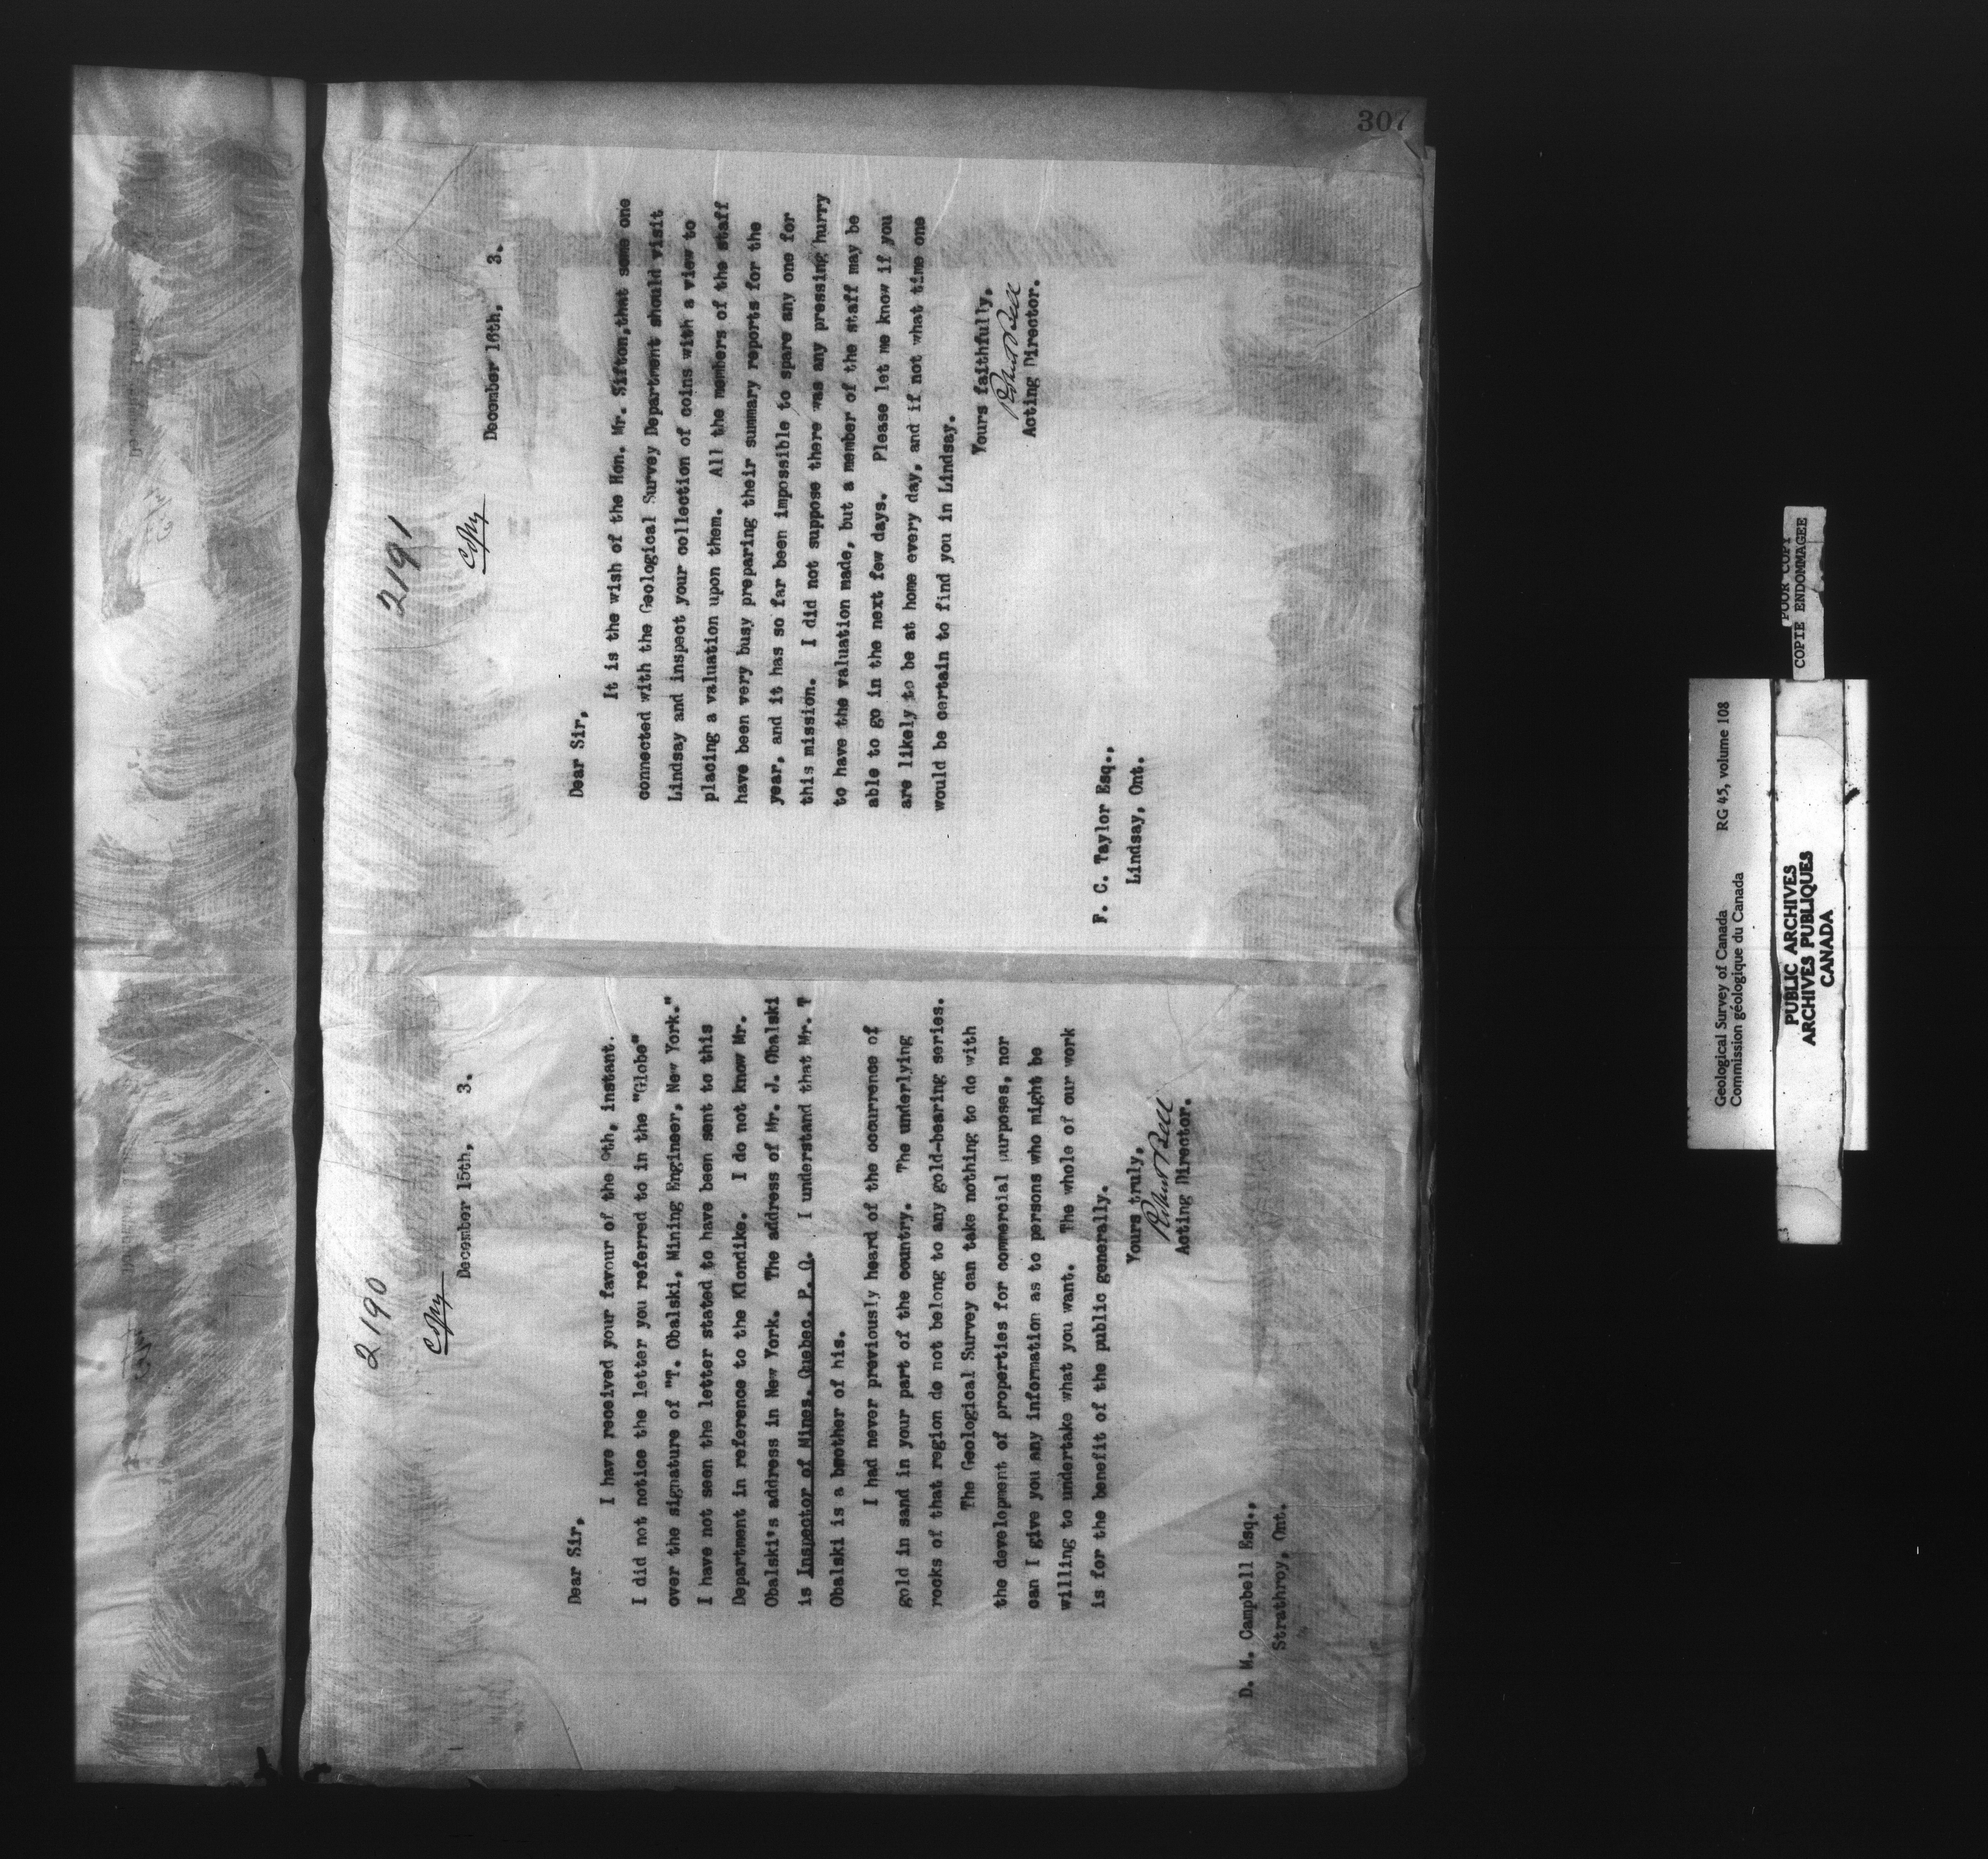 307
2190
Copy
December 15th, 3.
Dear Sir,
I have received your favour of the 9th, instant.
I did not notice the letter you referred to in the "Globe"
over the signature of "T. Obalski, Mining Engineer, New York."
I have not seen the letter stated to have been sent to this
Department in reference to the Klondike. I do not know Mr.
Obalski's address in New York. The address of Mr. J. Obalski
is Inspector of Mines, Quebec, P. Q. I understand that Mr. T
Obalski is a brother of his.
I had never previously heard of the occurrence of
gold in sand in your part of the country. The underlying
rocks of that region do not belong to any gold-bearing series.
The Geological Survey can take nothing to do with
the development of properties for commercial purposes, nor
can I give you any information as to persons who might be
willing to undertake what you want. The whole of our work
is for the benefit of the public generally.
Yours truly,
Robert Bell
Acting Director.
D. M. Campbell Esq.,
Strathroy, Ont.
2191
Copy
December 16th, 3.
Dear Sir,
It is the wish of the Hon. Mr. Sifton,that some one
connected with the Geological Survey Department should visit
Lindsay and inspect your collection of coins with a view to
placing a valuation upon them. All the members of the staff
have been very busy preparing their summary reports for the
year, and it has so far been impossible to spare any one for
this mission. I did not suppose there was any pressing hurry
to have the valuation made, but a member of the staff may be
able to go in the next few days. Please let me know if you
are likely to be at home every day, and if not what time one
would be certain to find you in Lindsay.
Yours faithfully,
Robert Bell
Acting Director.
F. C. Taylor Esq.,
Lindsay, Ont.
Geological Survey of Canada RG 45, volume 108
Commission géologique du Canada
PUBLIC ARCHIVES
ARCHIVES PUBLIQUES
CANADA
POOR COPY
COPIE ENDOMMAGEE